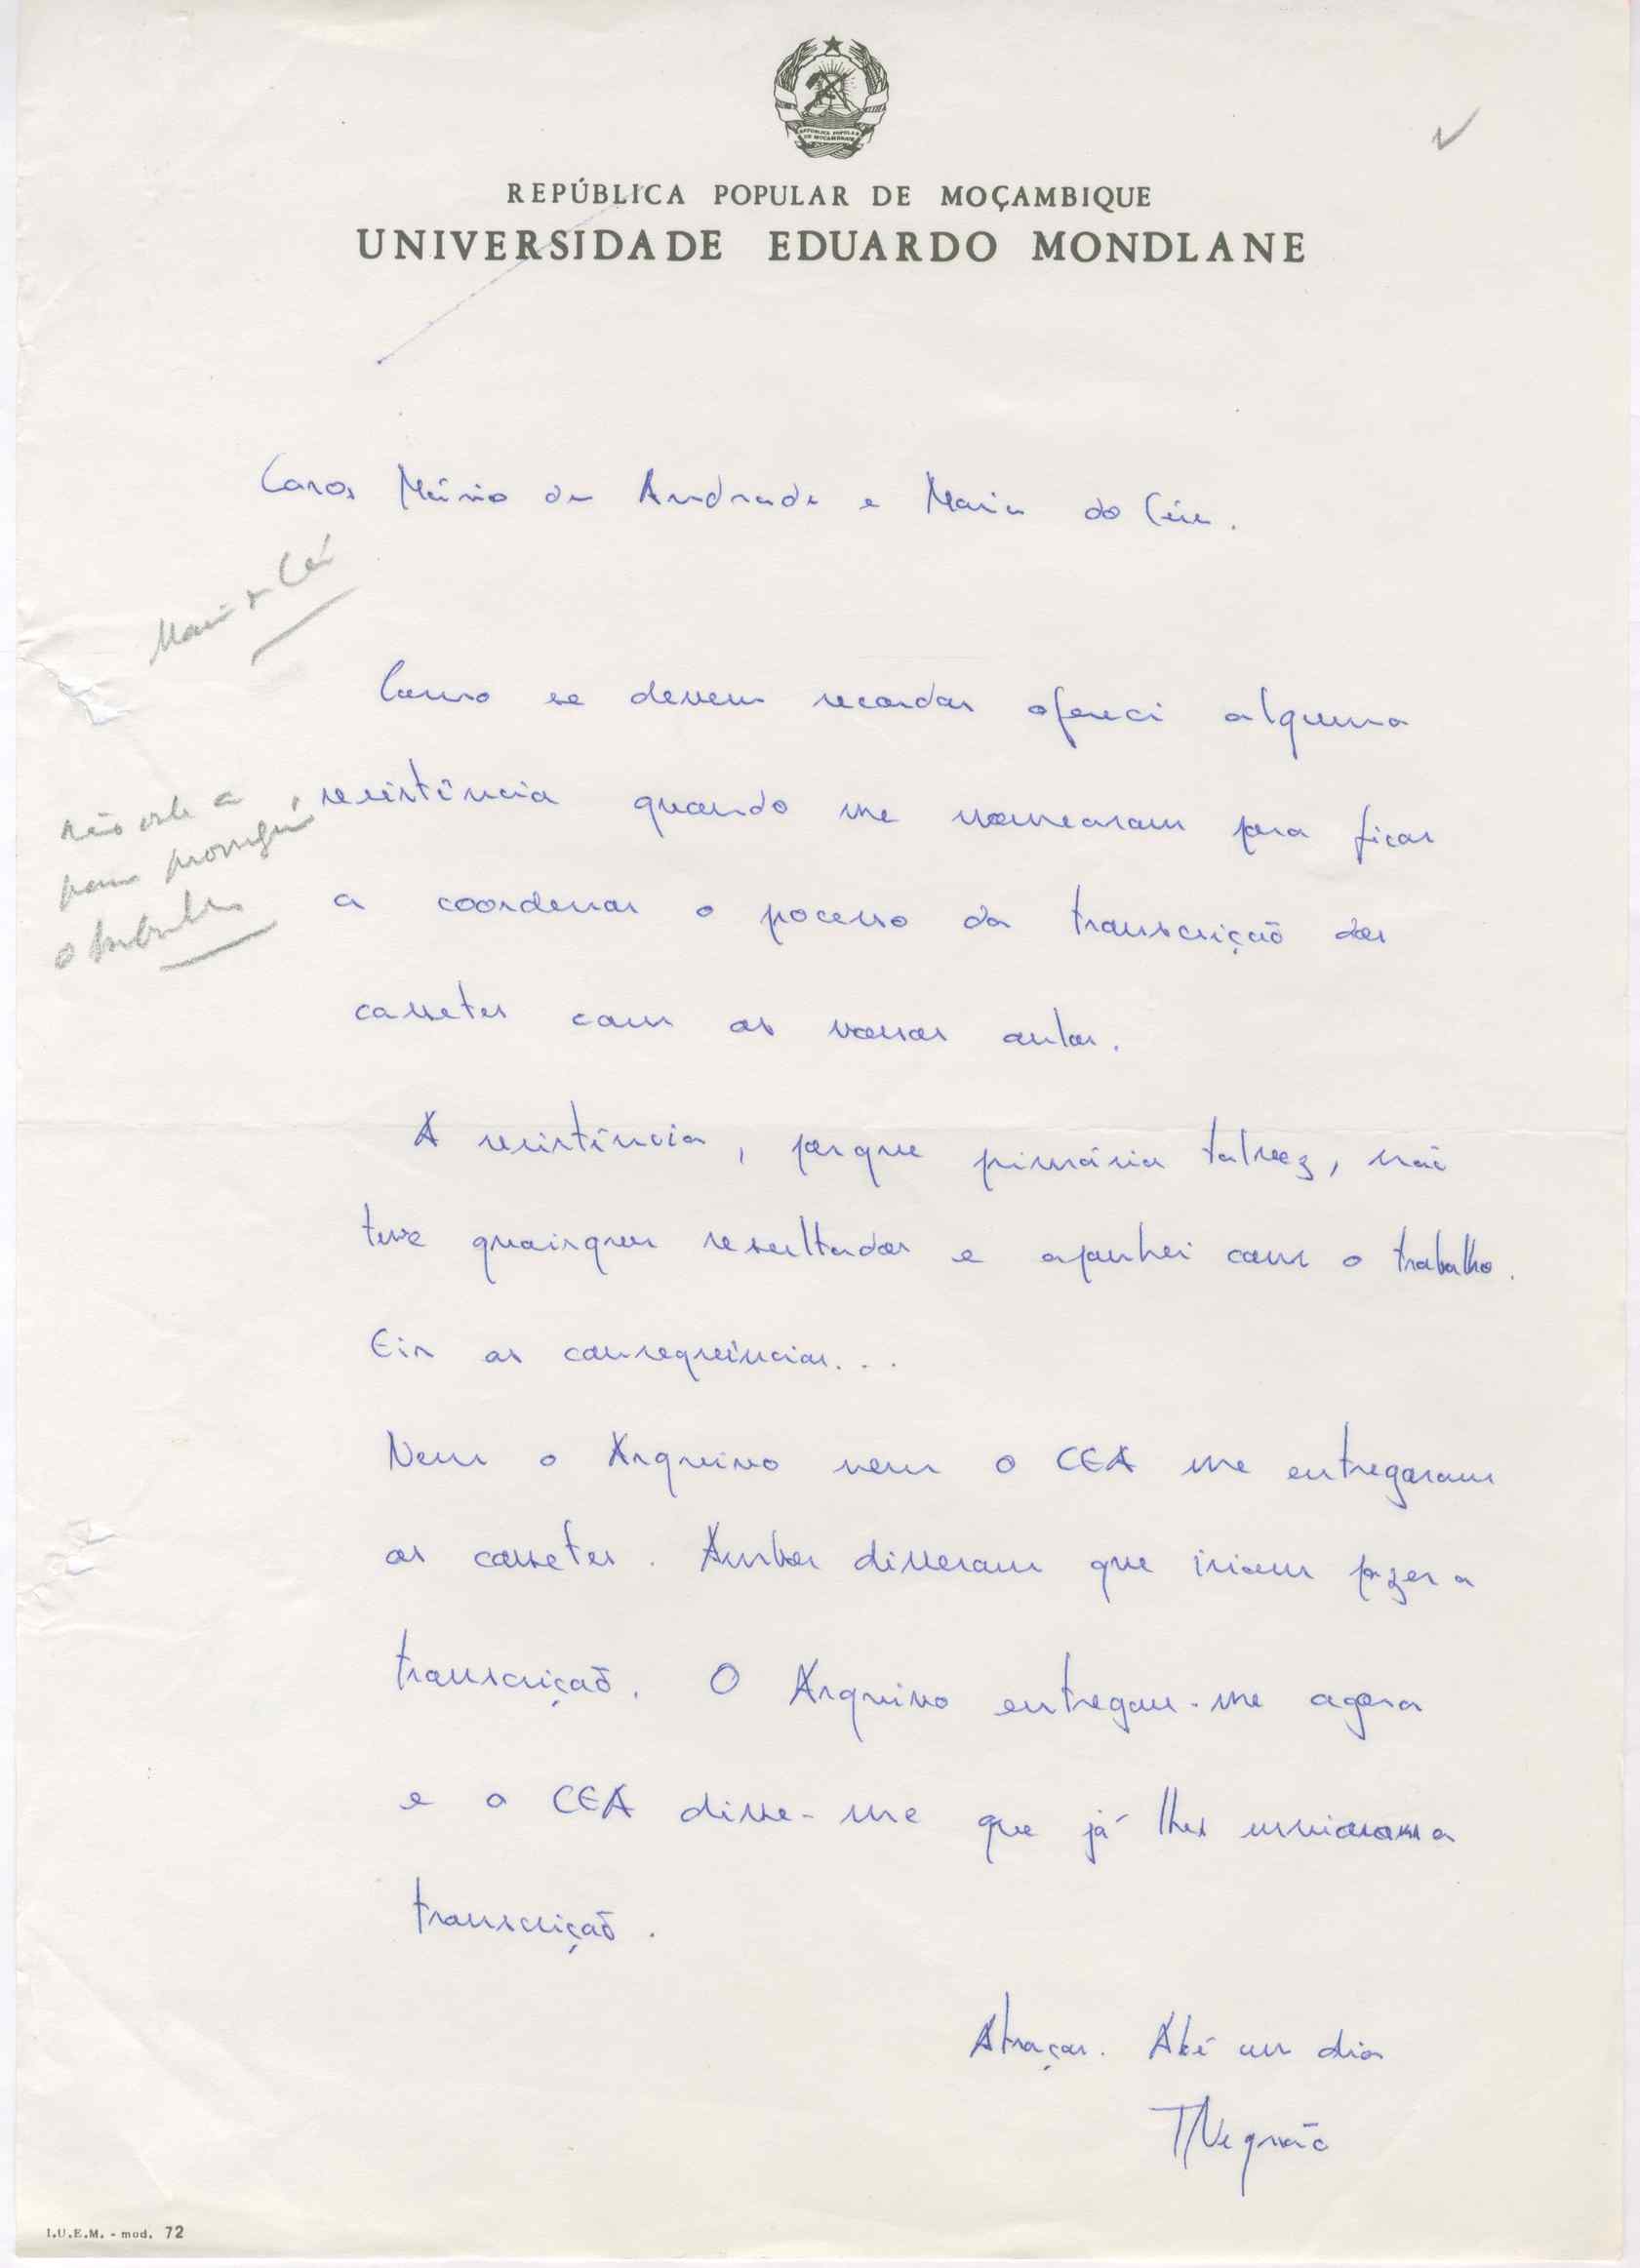 REPÚBLICA POPULAR DE MOÇAMBIQUE
UNIVERSIDADE EDUARDO MONDLANE
Caros Mário de Andrade e Maria do Céu.
Maria do Céu
Como se devem recordar ofereci alguma
resistência quando me nomearam para ficar
não vale a
pena prosseguir
o trabalho
a coordenar o pocesso da transcrição das
cassetes com as vossas aulas.
A resistência, porque primária talvez, não
teve quaisquer resultados e apanhei com o trabalho.
Eis as consequências...
Nem o Arquivo nem o CEA me entregaram
as cassetes. Ambos disseram que iriam fazer a
transcrição. O Arquivo entregou-me agora
e o CEA disse-me que já lhes enviaram a
transcrição.
Abraços. Até um dia
TNegrão
I.U.E.M. - mod. 72